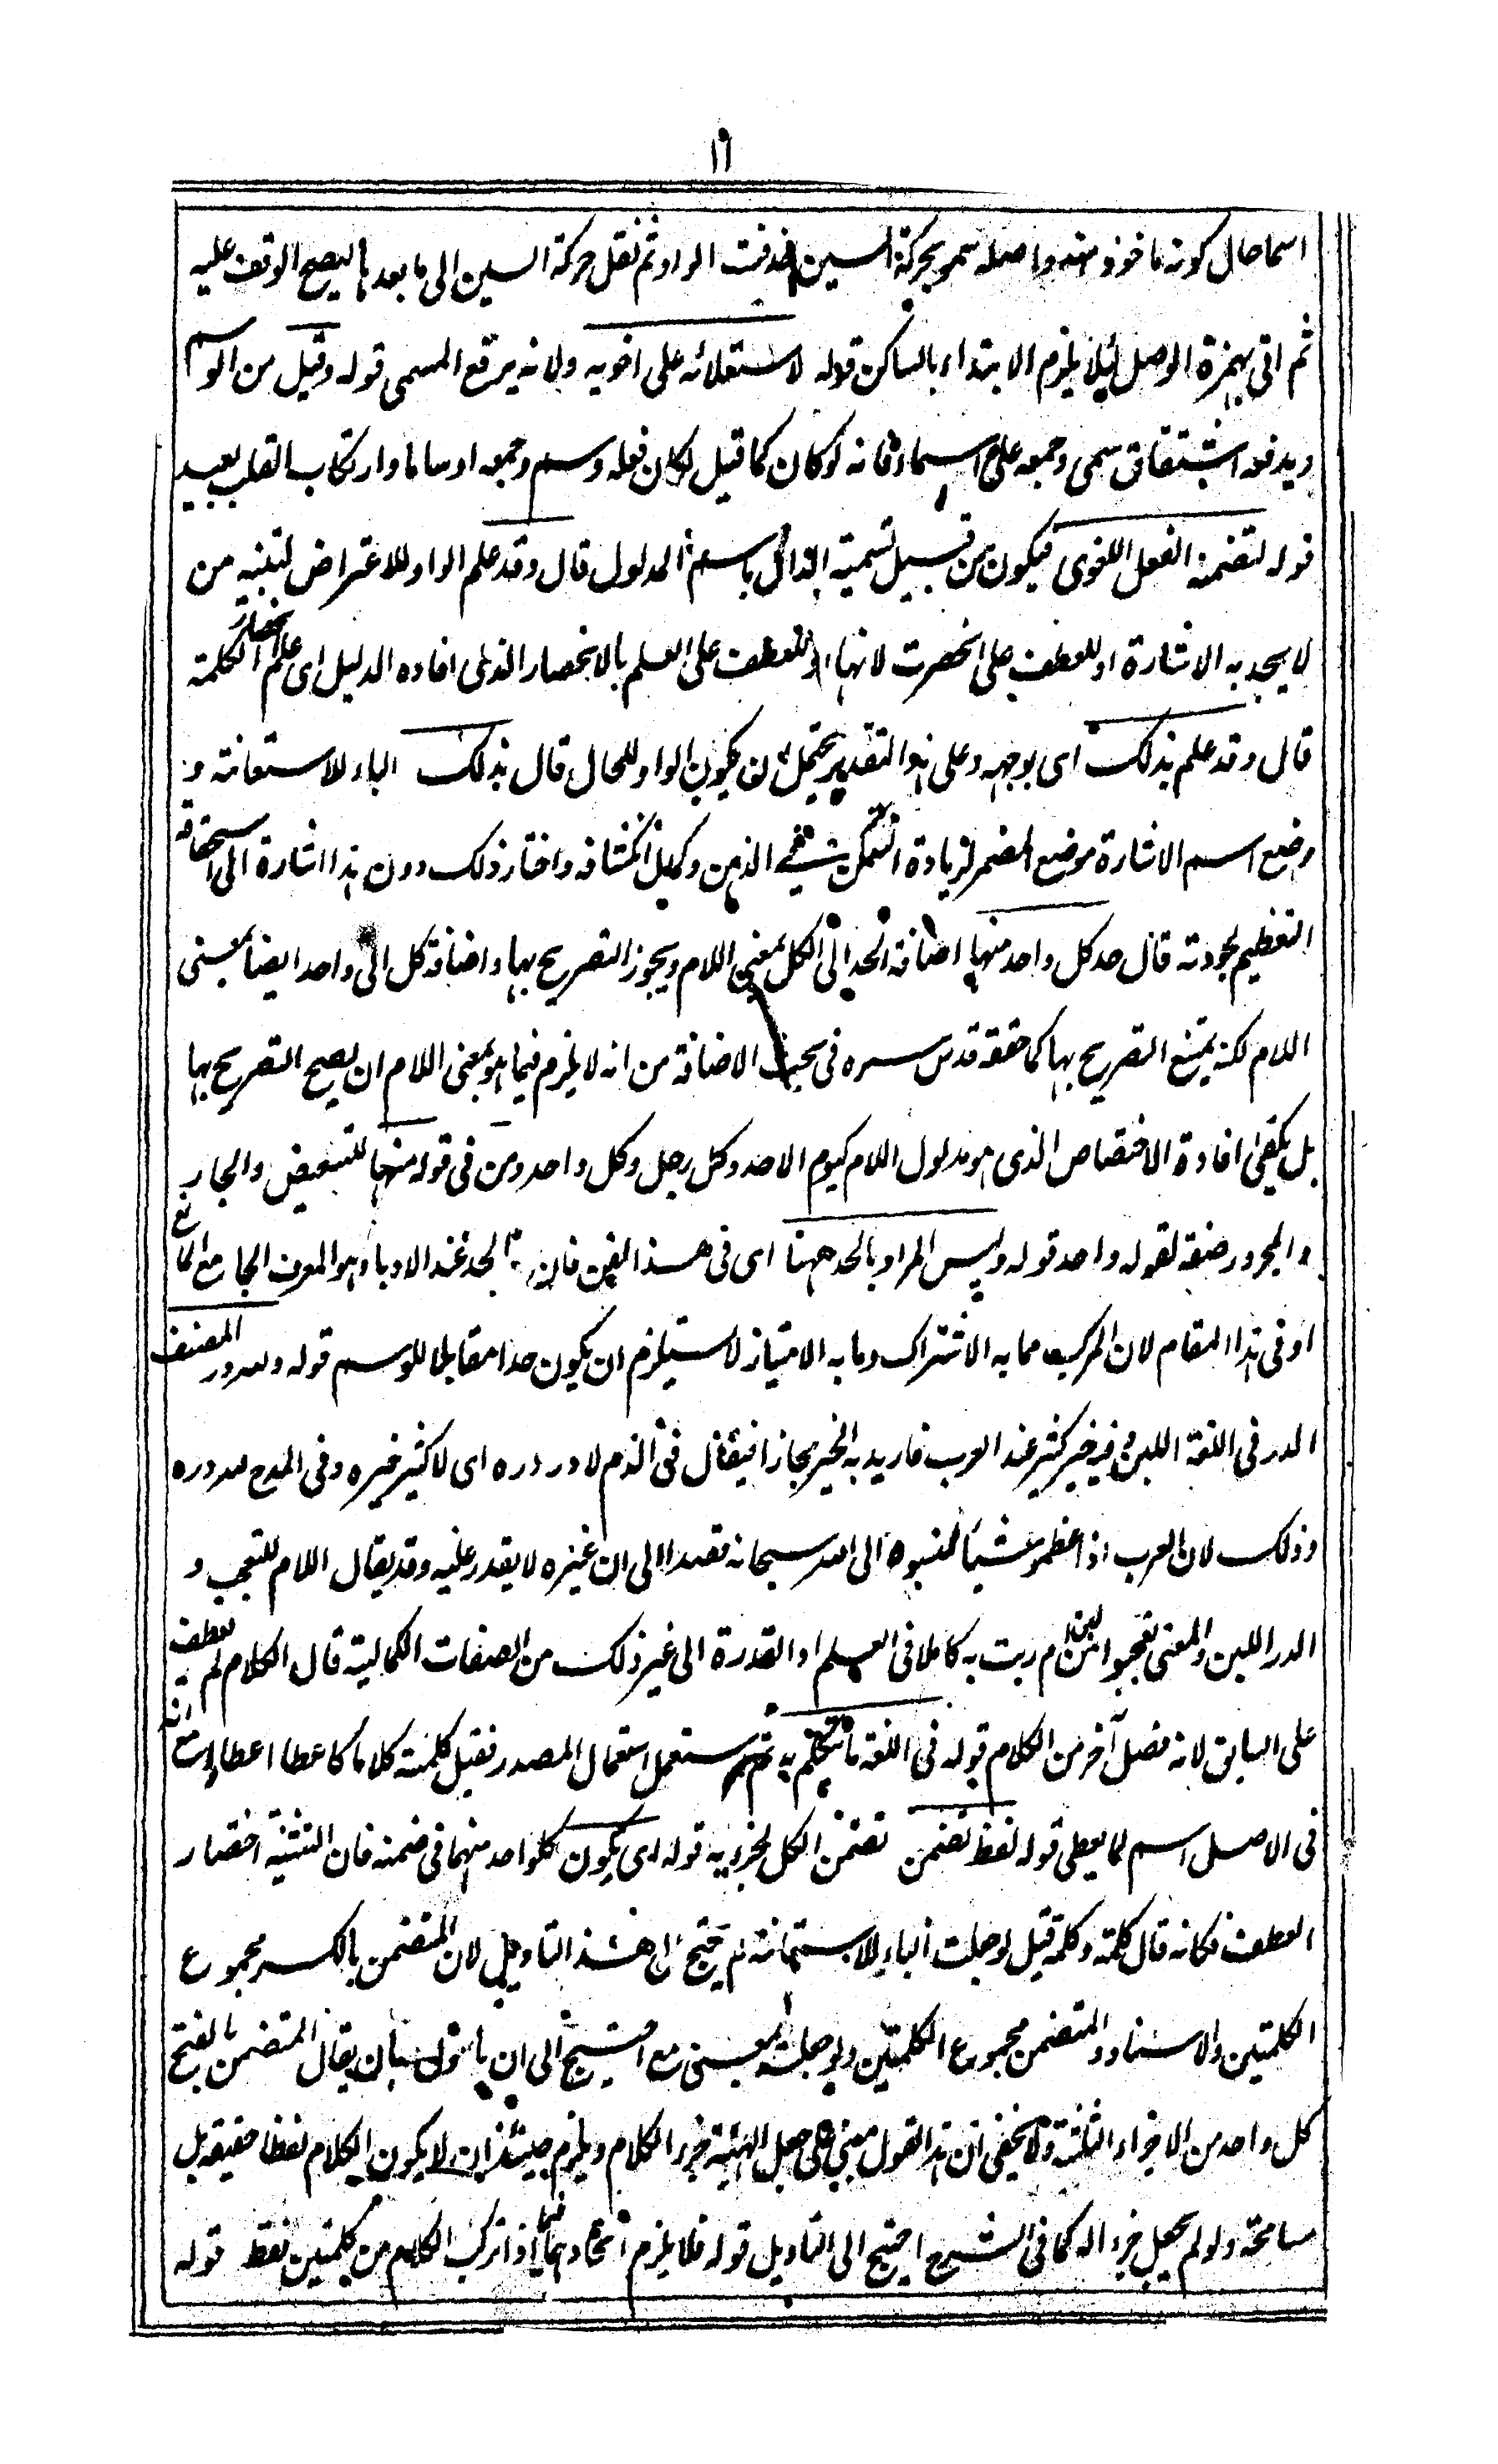 ١٦
اسما حال كونه ماخوذ منه واصله سمو بحركة السين فحذفت الواو ثم نقل حركة السين الى ما بعدها ليصح الوقف عليه
ثم اتى بهمزة الوصل لئلا يلزم الابتداء بالساكن قوله لاستعلائه على اخويه ولانه يرفع المسمى قوله وقيل من الوسم
ويدفعه اشتقاق سمى وجمعه على اسماء فانه لو كان كما قيل لكان فعله وسم وجمعه اوساما وارتكاب القلب بعيد
قوله لتضمنه الفعل اللغوى فيكون من قبيل تسمية الدال باسم المدلول قال وقد علم الواو للاعتراض لتنبيه من
لا يجد به الاشارة او للعطف على انحصرت لانها او للعطف على العلم بالانحصار الذى افاده الدليل اى علم انحصار الكلمة
قال وقد علم بذلك اى بوجهه وعلى هذا التقدير يحتمل ان يكون الواو للحال قال بذلك الباء للاستعانة و
وضع اسم الاشارة موضع المضمر لزيادة التمكن فى الذهن وكمال انكشافه واختار ذلك دون هذا اشارة الى استحقاقه
التعظيم لجودته قال حد كل واحد منها اضافة الحد الى الكل بمعنى اللام ويجوز التصريح بها واضافة كل الى واحد ايضا بمعنى
اللام لكنه يمتنع التصريح بها كما حققه قدس سره فى بحث الاضافة من انه لا يلزم فيما هو بمعنى اللام ان يصح التصريح بها
بل يكفى افادة الاختصاص الذى هو مدلول اللام كيوم الاحد وكل رجل وكل واحد ومن فى قوله منها للتبعيض والجار
والمجرور صفة لقوله واحد قوله وليس المراد بالحد ههنا اى فى هذا الفن فان الحد عند الادباء هو المعرف الجامع المانع
او فى هذا المقام لان المركب مما به الاشتراك وما به الامتياز لا يستلزم ان يكون حدا مقابلا للرسم قوله ولله در المصنف
الدر فى اللغة اللبن وفيه خير كثير عند العرب فاريد به الخير مجازا فيقال فى الذم لا در دره اى لا كثير خيره وفى المدح لله دره
وذلك لان العرب اذا عظموا شيئا نسبوه الى الله سبحانه قصدا الى ان غيره لا يقدر عليه وقد يقال اللام للتعجب و
الدر اللبن والمعنى تعجبوا من لبن ام ربت به كاملا فى العلم او القدرة الى غير ذلك من الصفات الكمالية قال الكلام لم يعطف
على السابق لانه فصل آخر من الكلام قوله فى اللغة ما يتكلم به ثم استعمل استعمال المصدر فقيل كلمته كلاما كاعطا اعطاء مع انه
فى الاصل اسم لما يعطى قوله لفظ تضمن تضمن الكل لجزءيه قوله اى يكون كلواحد منهما فى ضمنه فان التثنية اختصار
العطف فكانه قال كلمة وكلمة قيل لو جعلت الباء للاستعانة لم يحتج الى هذا التاويل لان المتضمن بالكسر مجموع
الكلمتين والاسناد والمتضمن مجموع الكلمتين ولو جعلت بمعنى مع احتيج الى ان ياول بان يقال المتضمن بالفتح
كل واحد من الاجزاء الثلثة ولا يخفى ان هذا القول مبنى على جعل الهيئة جزء الكلام ويلزم حينئذ ان لا يكون الكلام لفظا حقيقة بل
مسامحة ولو لم يجعل جزءا له كما فى الشرح احتيج الى التاويل قوله فلا يلزم اتحادهما اذا تركب الكلام من كلمتين فقط قوله